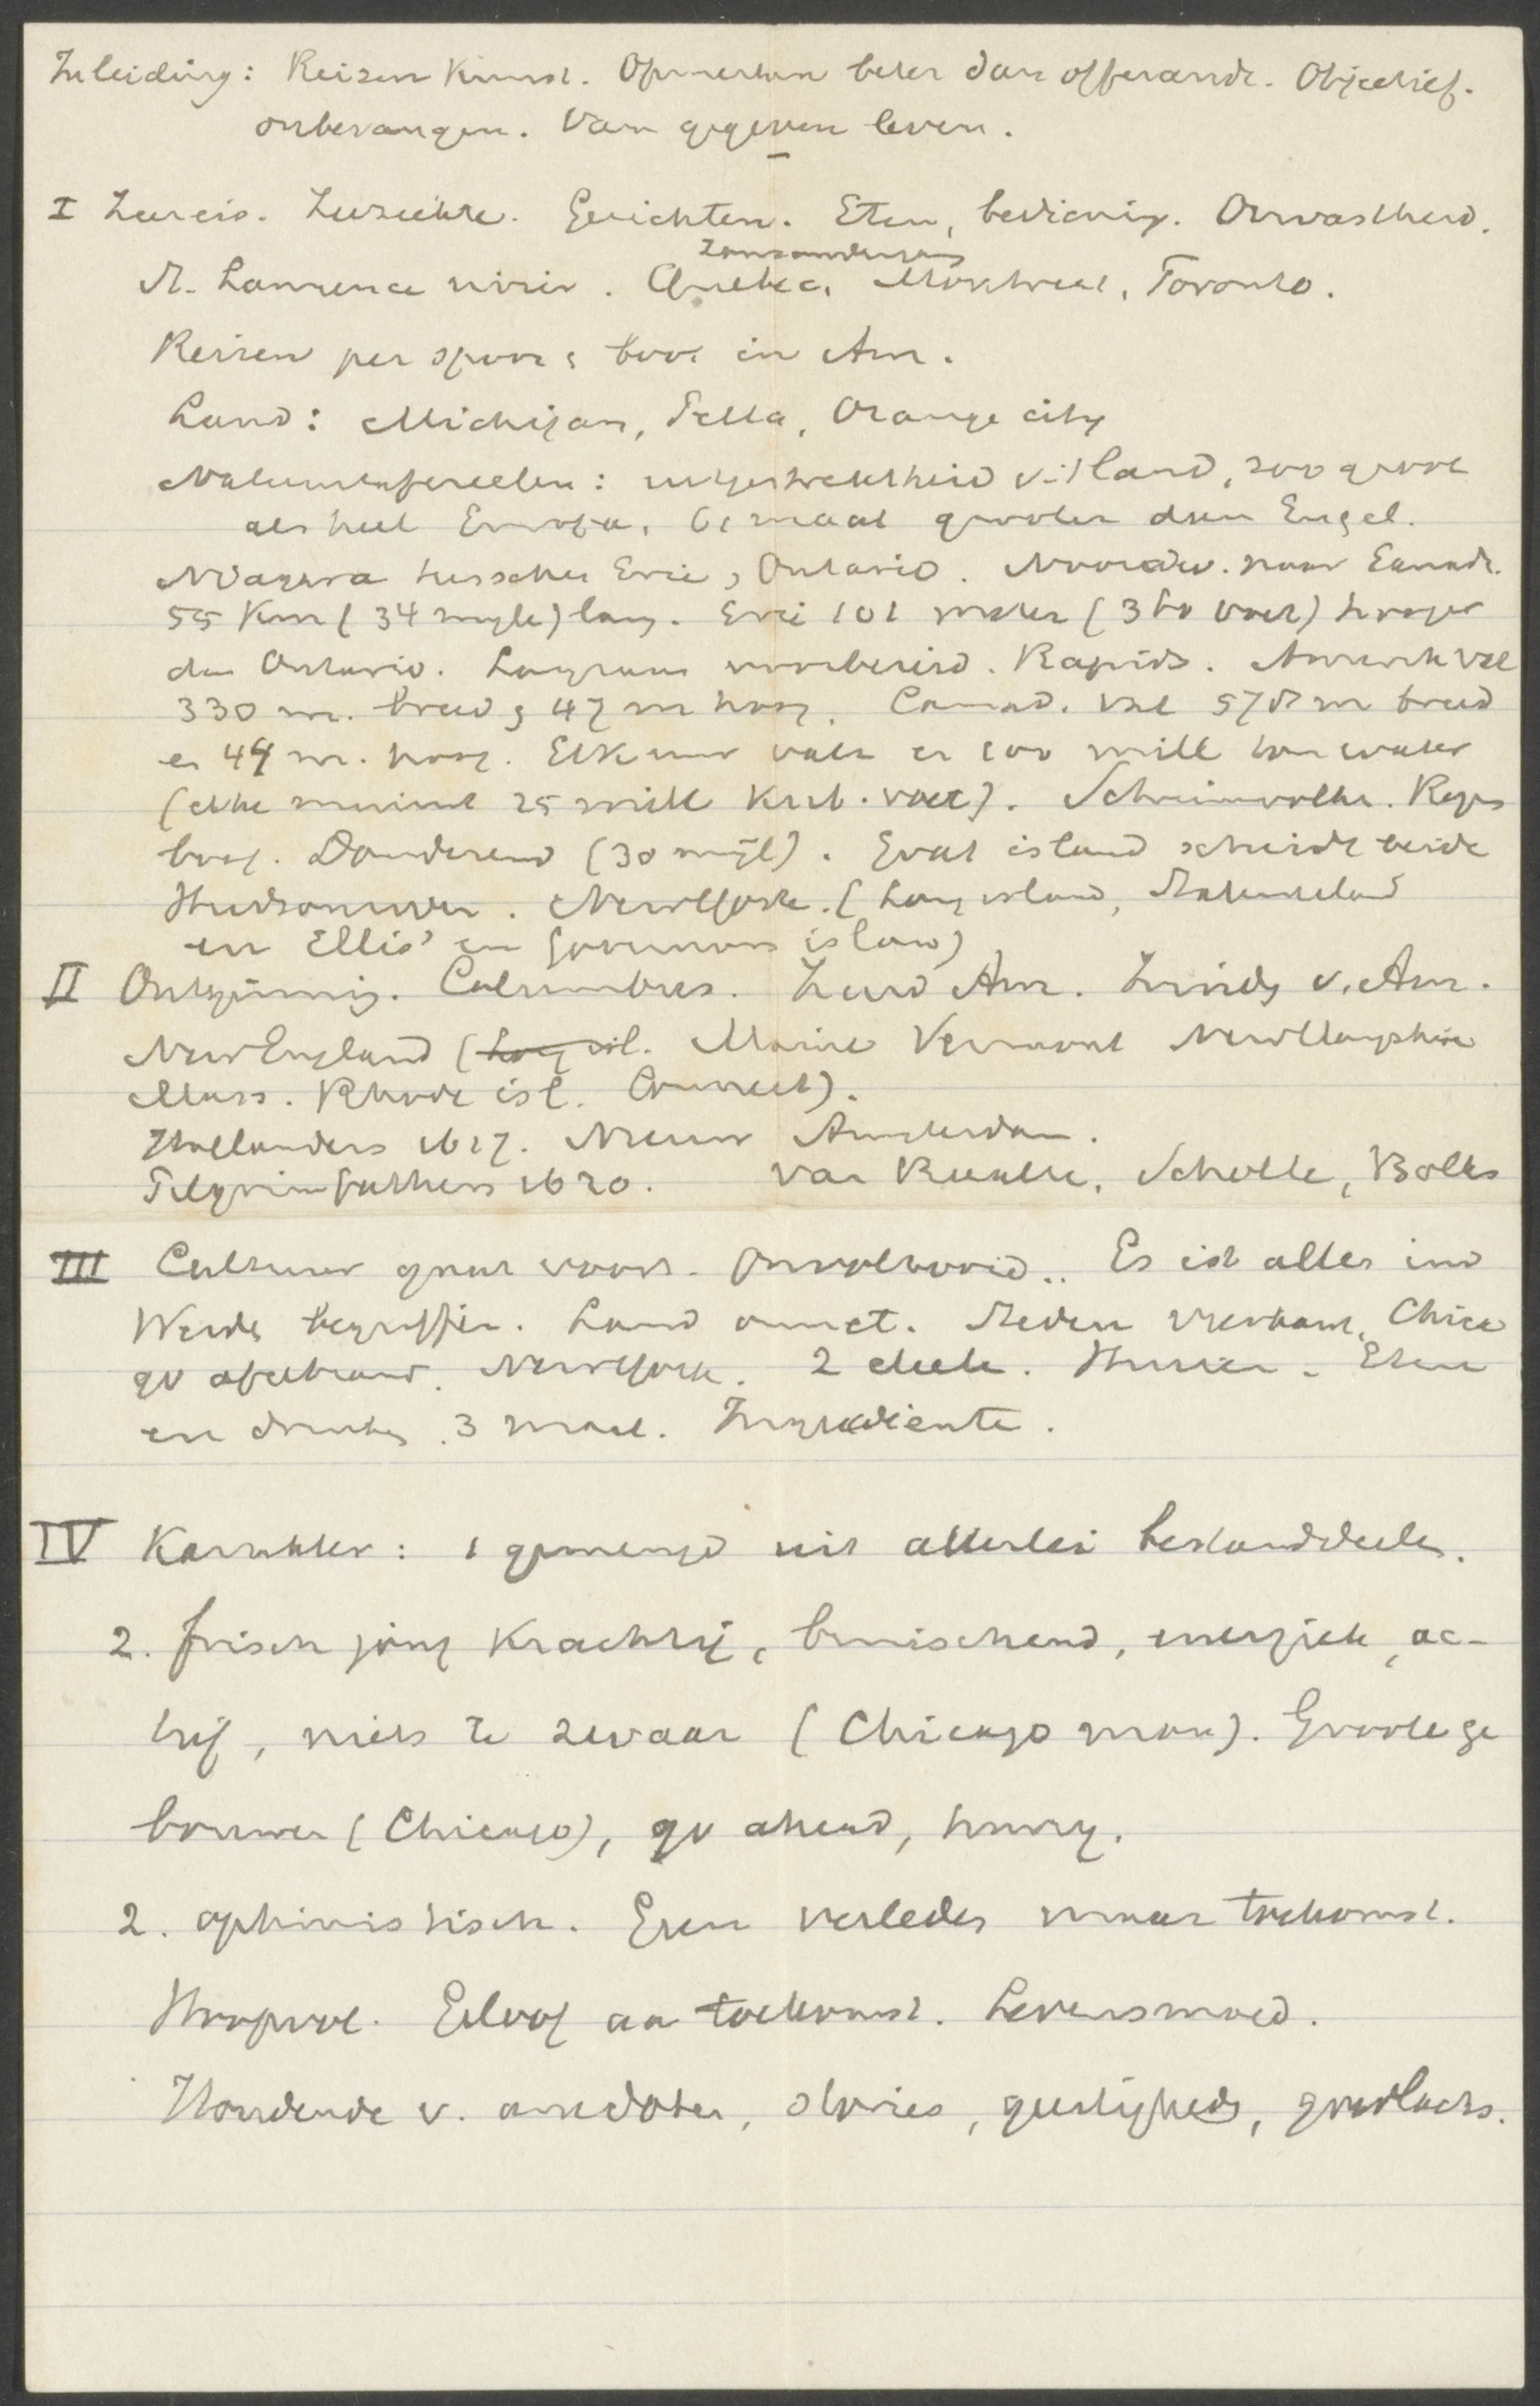 Inleiding: Reizen Kunst. Opmerken beter dan offerande. Objectief.
onbevangen. Van gegeven leven.
I Zeereis. Zeeziekte. Gerichten. Eten, bediening. Onvastheid.
zonsondergang
St. Lawrence rivier. Quebec, Montreal, Toronto.
Reizen per spoor, boot in Am.
Land: Michigan, Pella, Orange city
Natuurtafereelen: uitgestrektheid v. 't land, zoo groot
als heel Europa, 61 maal grooter dan Engel.
Niagara tusschen Erie, Ontario. Noordw. naar Canad.
55 Km (34 myle) lang. Erie 101 meter (360 voet) hooger
dan Ontario. Langzaam voorbereid. Rapids. Amerik val
330 m. breed, 47 m hoog. Canad. val 578 m breed
en 44 m. hoog. Elk uur valt er 100 mill ton water
(elke minuut 25 mill kub. voet). Schuimwolke. Regen
boog. Donderend (30 mijl). Goat island scheidt beide
Hudsonrivier. NewYork. (Long island, Statenisland
en Ellis' en Governors island)
II Ontginning. Columbus. Zuid Am. Indy v. Am.
New England (Long isl. Maine Vermont New Hampshire
Mass. Rhode isl. Connect).
Hollanders 1627. Nieuw Amsterdam.
Pelgrimfathers 1620. Van Raalte, Scholte, Bolks
III Cultuur gaat voort. Onvoltooid.. Es ist alles im
Werde begriffen. Land onmet. Steden vierkant, Chica
go afgebrand. NewYork. 2 deele. Huizen. Eten
en drinken 3 maal. Ingrediente.
IV Karakter: 1 gemengd uit allerlei bestanddeelen.
2. frisch jong krachtig, bruischend, energiek, ac-
tief, niets te zwaar (Chicago man). Groote ge
bouwen (Chicago), go ahead, hurry.
2. optimistisch. Geen verleden maar toekomst.
Hoopvol. Geloof aan toekomst. Levensmoed.
Houdende v. anecdoten, stories, geestigheden, goedlachs.